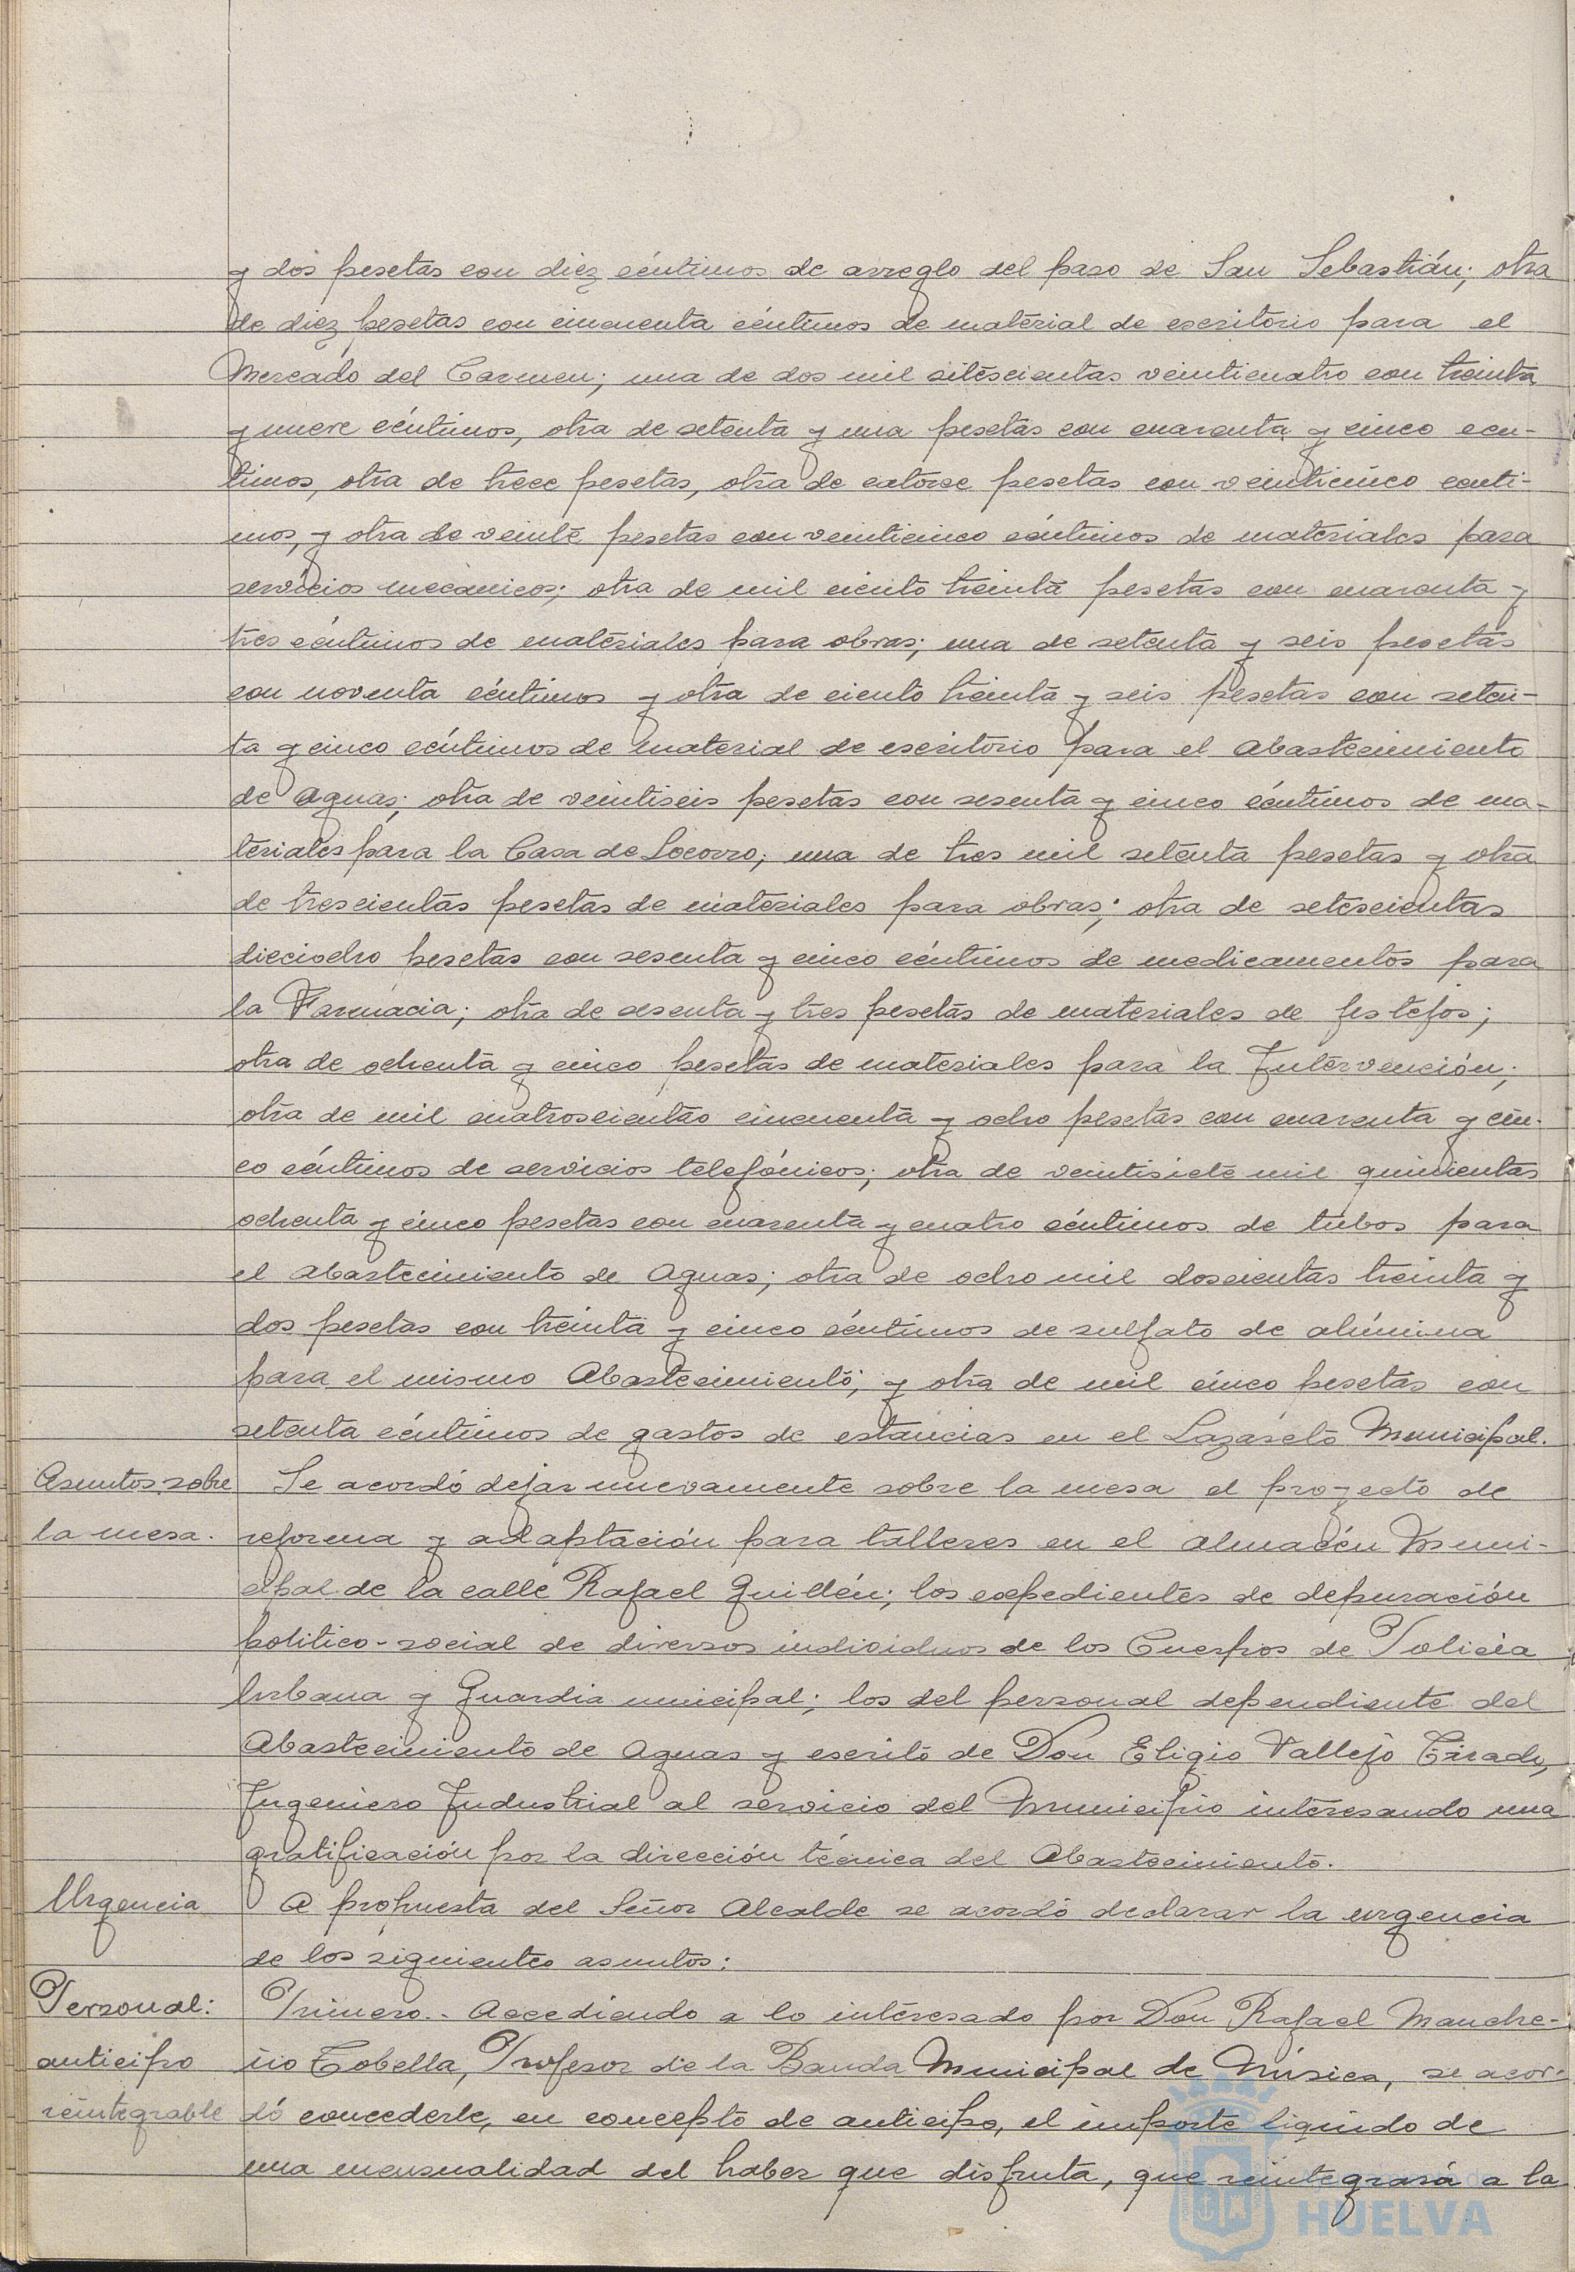 y dos pesetas con diez céntimos de arreglo del paso de San Sebastián; otra
de diez pesetas con cincuenta céntimos de material de escritorio para el
Mercado del Carmen; una de dos mil setescientas veinticuatro con treinta
y nueve céntimos, otra de setenta y una pesetas con cuarenta y cinco cén-
timos, otra de trece pesetas, otra de catorce pesetas con veinticinco cénti-
mos, y otra de veinte pesetas con veinticinco céntimos de materiales para
servicios mecánicos; otra de mil ciento treinta pesetas con cuarenta y
tres céntimos de materiales para obras; una de setenta y seis pesetas
con noventa céntimos y otra de ciento treinta y seis pesetas con seten-
ta y cinco céntimos de material de escritorio para el Abastecimiento
de Aguas; otra de veintiseis pesetas con sesenta y cinco céntimos de ma-
teriales para la Casa de Socorro; una de tres mil setenta pesetas y otra
de trescientas pesetas de materiales para obras; otra de setescientas
dieciocho pesetas con sesenta y cinco céntimos de medicamentos para
la Farmacia; otra de sesenta y tres pesetas de materiales de festejos;
otra de ochenta y cinco pesetas de materiales para la Intervención;
otra de mil cuatroscientas cincuenta y ocho pesetas con cuarenta y cin-
co céntimos de servicios telefónicos; otra de veintisiete mil quinientas
ochenta y cinco pesetas con cuarenta y cuatro céntimos de tubos para
el Abastecimiento de Aguas; otra de ocho mil doscientas treinta y
dos pesetas con treinta y cinco céntimos de sulfato de alúmina
para el mismo Abastecimiento; y otra de mil cinco pesetas con
setenta céntimos de gastos de estancias en el Lazareto Municipal.
Asuntos sobre Se acordó dejar nuevamente sobre la mesa el proyecto de
la mesa. reforma y adaptación para talleres en el Almacén Muni-
cipal de la calle Rafael Guillén; los expedientes de depuración
politico-social de diversos individuos de los Cuerpos de Policía
Urbana y Guardia municipal; los del personal dependiente del
Abastecimiento de Aguas y escrito de Don Eligio Vallejo Tirado,
Ingeniero Industrial al servicio del Municipio interesando una
gratificación por la dirección técnica del Abastecimiento.
Urgencia A propuesta del Señor Alcalde se acordó declarar la urgencia
de los siguientes asuntos:
Personal: Primero.- Accediendo a lo interesado por Don Rafael Manche-
anticipo ño Tobella, Profesor de la Banda Municipal de Música, se acor-
reintegrable dó concederle, en concepto de anticipo, el importe liquido de
una mensualidad del haber que disfruta, que reintegrará a la
HUELVA